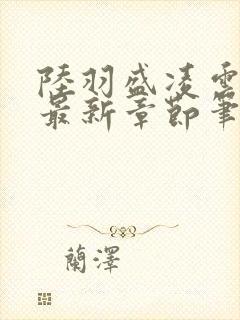 陸羽盛凌雲
最新章節筆
蘭澤